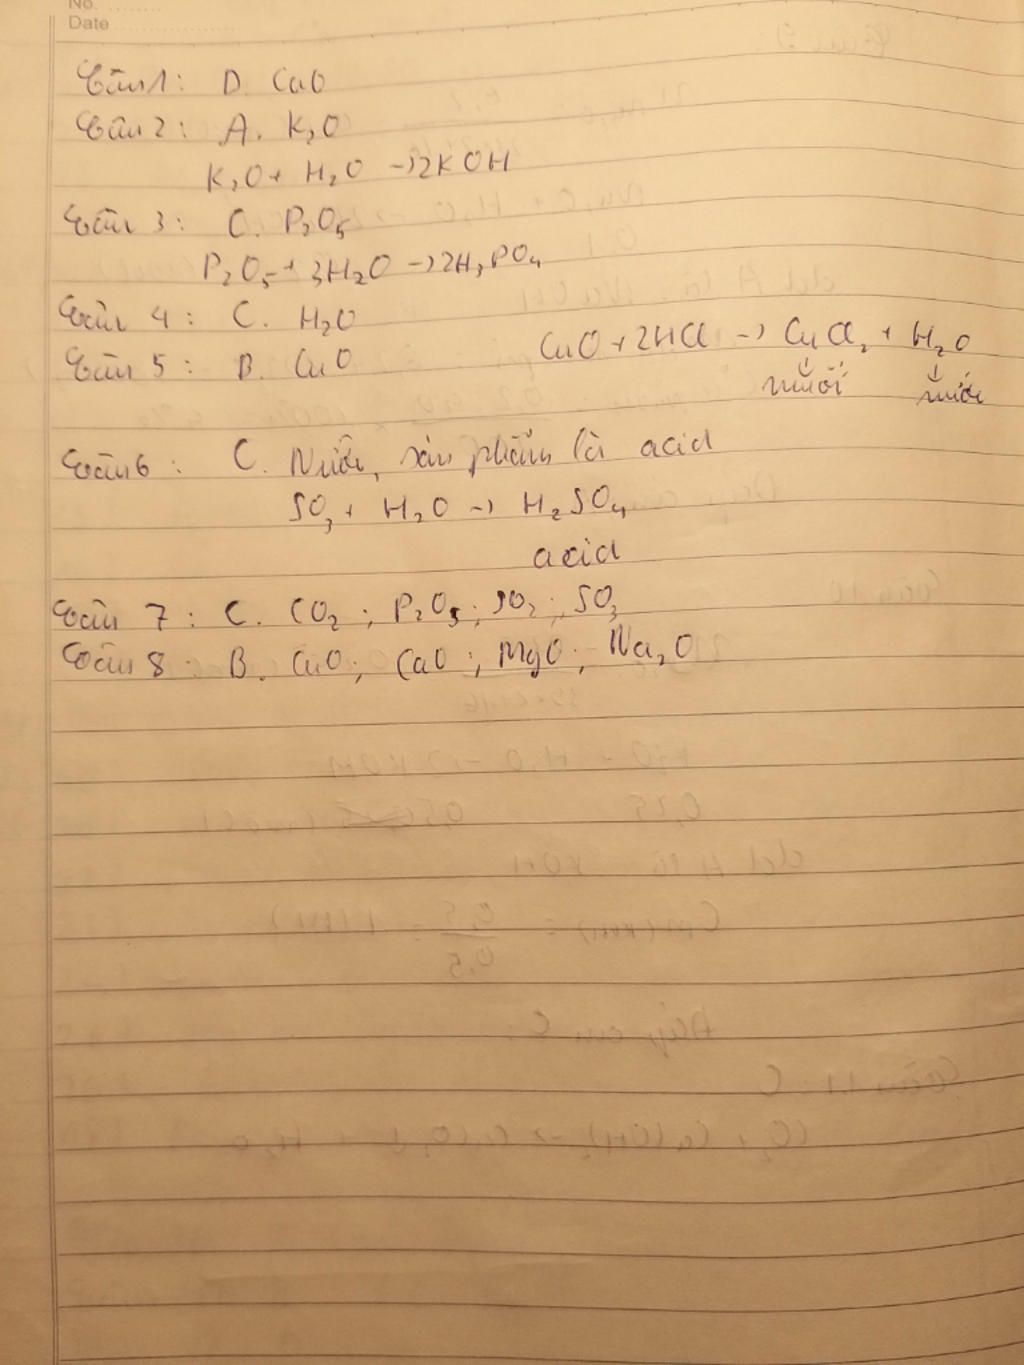 No. ........
Date ....................
Câu 1: D. CaO
Câu 2: A. K₂O
K₂O + H₂O → 2KOH
Câu 3: C. P₂O₅
P₂O₅ + 3H₂O → 2H₃PO₄
Câu 4: C. H₂O
Câu 5: B. CuO CuO + 2HCl → CuCl₂ + H₂O
↓ ↓
muối nước
Câu 6: C. Nước, sản phẩm là acid
SO₃ + H₂O → H₂SO₄
acid
Câu 7: C. CO₂; P₂O₅; SO₂; SO₃
Câu 8: B. CuO; CaO; MgO; Na₂O